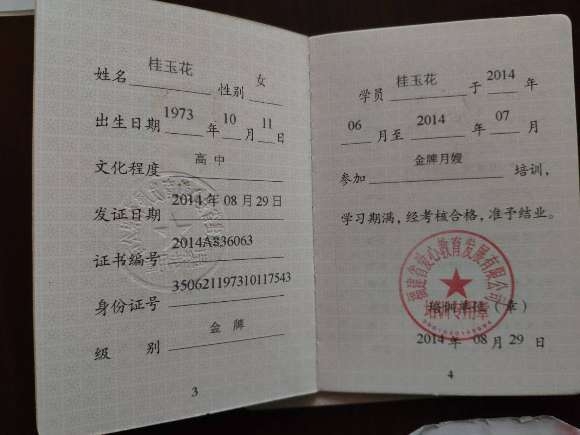 姓名 桂玉花 性别 女
出生日期 1973 年 10 月 11 日
文化程度 高中
发证日期 2014 年 08 月 29 日
证书编号 2014A836063
身份证号 350621197310117543
级 别 金牌
3
学员 桂玉花 于 2014 年
06 月至 2014 年 07 月
参加 金牌月嫂 培训，
学习期满，经考核合格，准予结业。
教育发展有限公司
培训专用章
（章）
2014 年 08 月 29 日
4